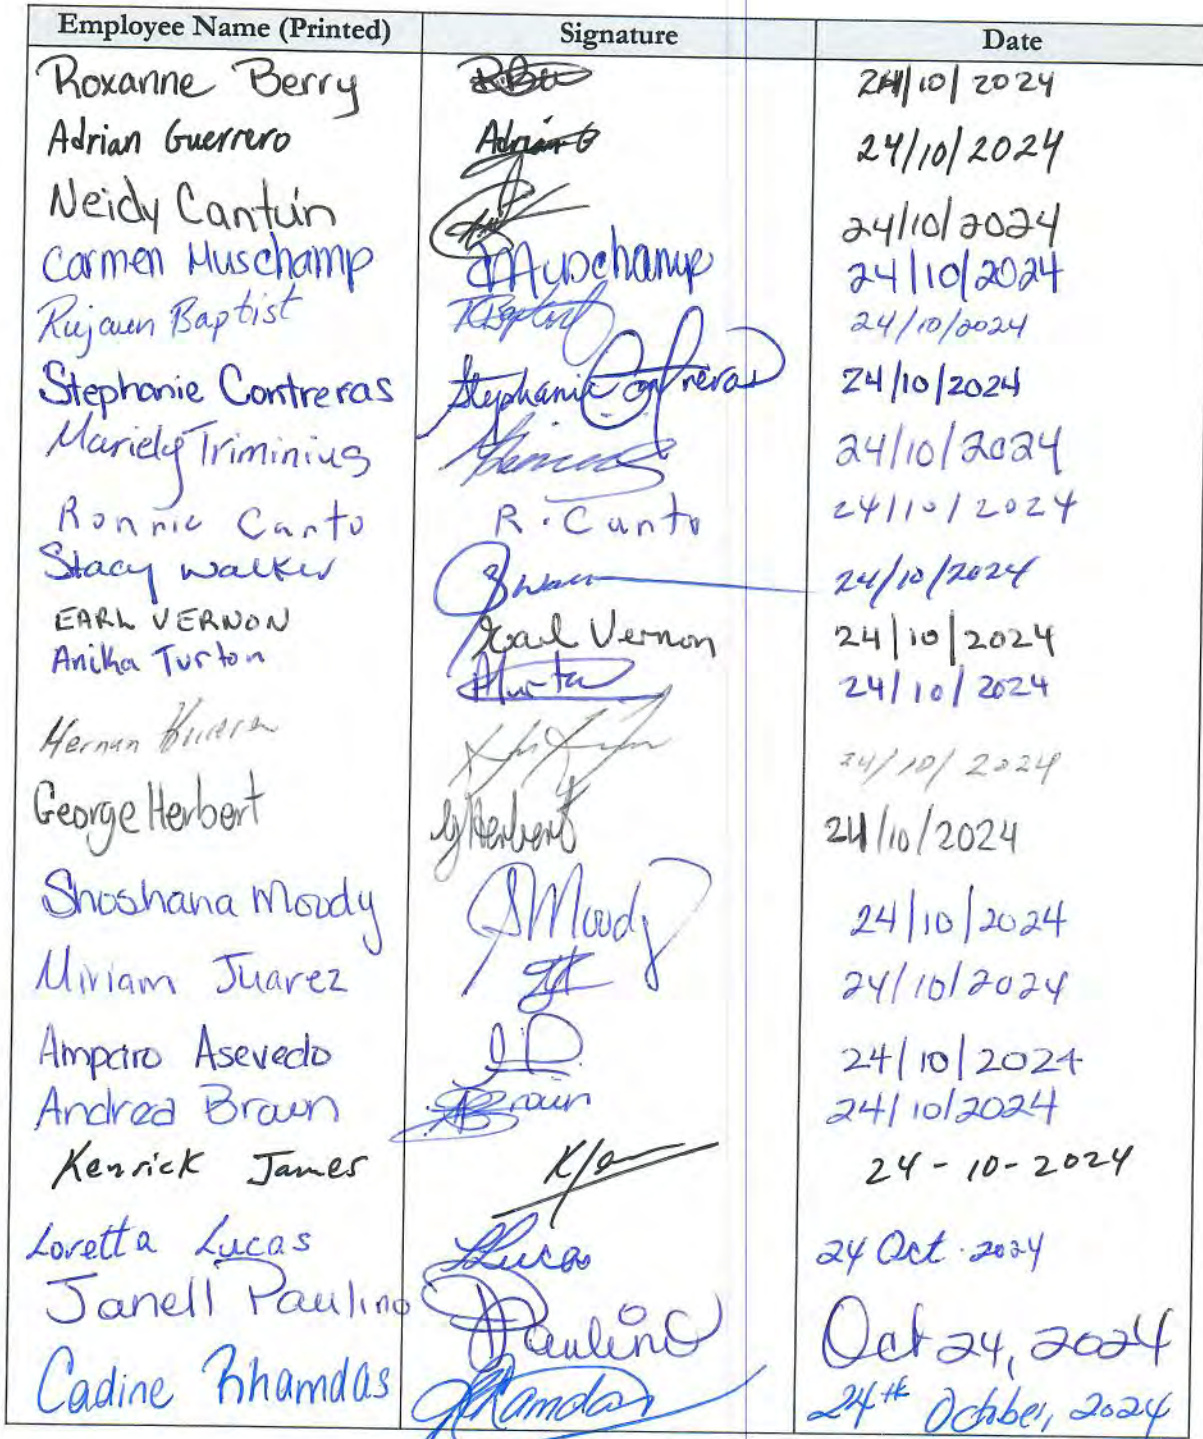 Employee Name (Printed) Signature Date
Roxanne Berry 24/10/2024
Adrian Guerrero Adrian G 24/10/2024
Neidy Cantún 24/10/2024
Carmen Muschamp CMuschamp 24/10/2024
Rujaun Baptist RBaptist 24/10/2024
Stephanie Contreras Stephanie Contreras 24/10/2024
Mariely Triminius 24/10/2024
Ronnie Canto R. Canto 24/10/2024
Stacy Walker 24/10/2024
EARL VERNON Earl Vernon 24/10/2024
Anika Turton 24/10/2024
Hernan 24/10/2024
George Herbert G Herbert 24/10/2024
Shoshana Moody SMoody 24/10/2024
Miriam Juarez 24/10/2024
Amparo Asevedo 24/10/2024
Andrea Brown ABrown 24/10/2024
Kenrick James 24-10-2024
Loretta Lucas LLucas 24 Oct. 2024
Janell Paulino JPaulino Oct 24, 2024
Cadine Rhamdas 24th October, 2024